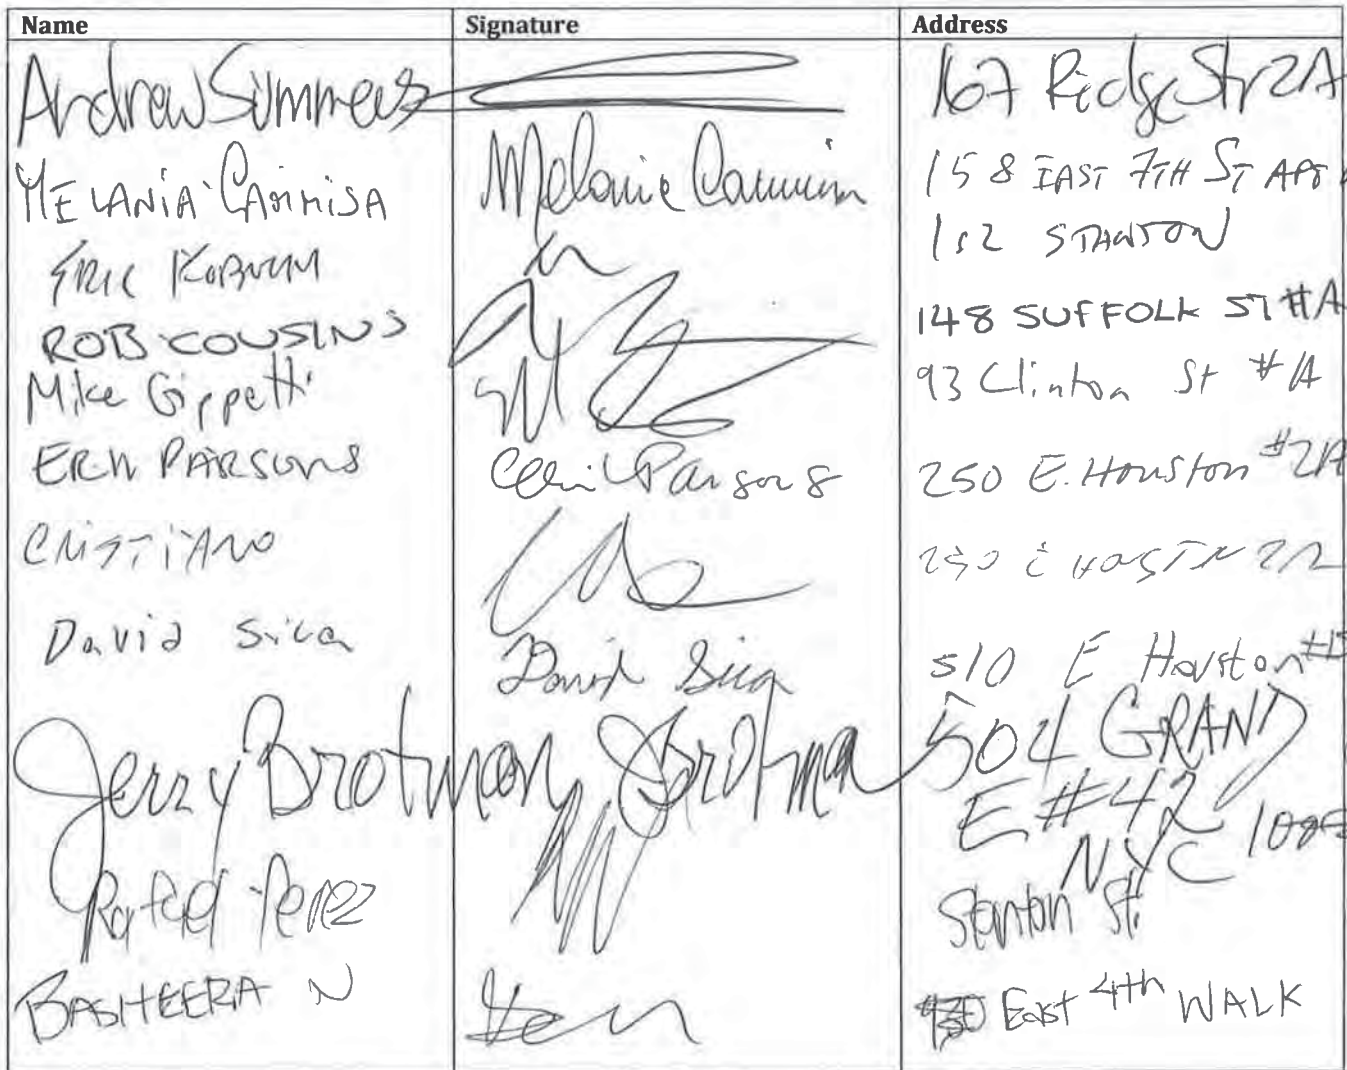 Name Signature Address
Andrew Summers 167 Ridge Str 2A
MELANIA CAMMISA Melanie Cammisa 158 EAST 7TH ST APT
ERIC 152 STANTON
ROB COUSINS 148 SUFFOLK ST #A
Mike Gippetti 93 Clinton St #1A
ERIN PARSONS Erin Parsons 250 E. Houston #2A
CRISTIANO 250 E HOSTN 2A
David Sica David Sica 510 E Houston
Jerry Brotman JBrotman 504 GRAND
E #42
NYC
Rafael Perez Stanton St.
BASHEERA N East 4th WALK